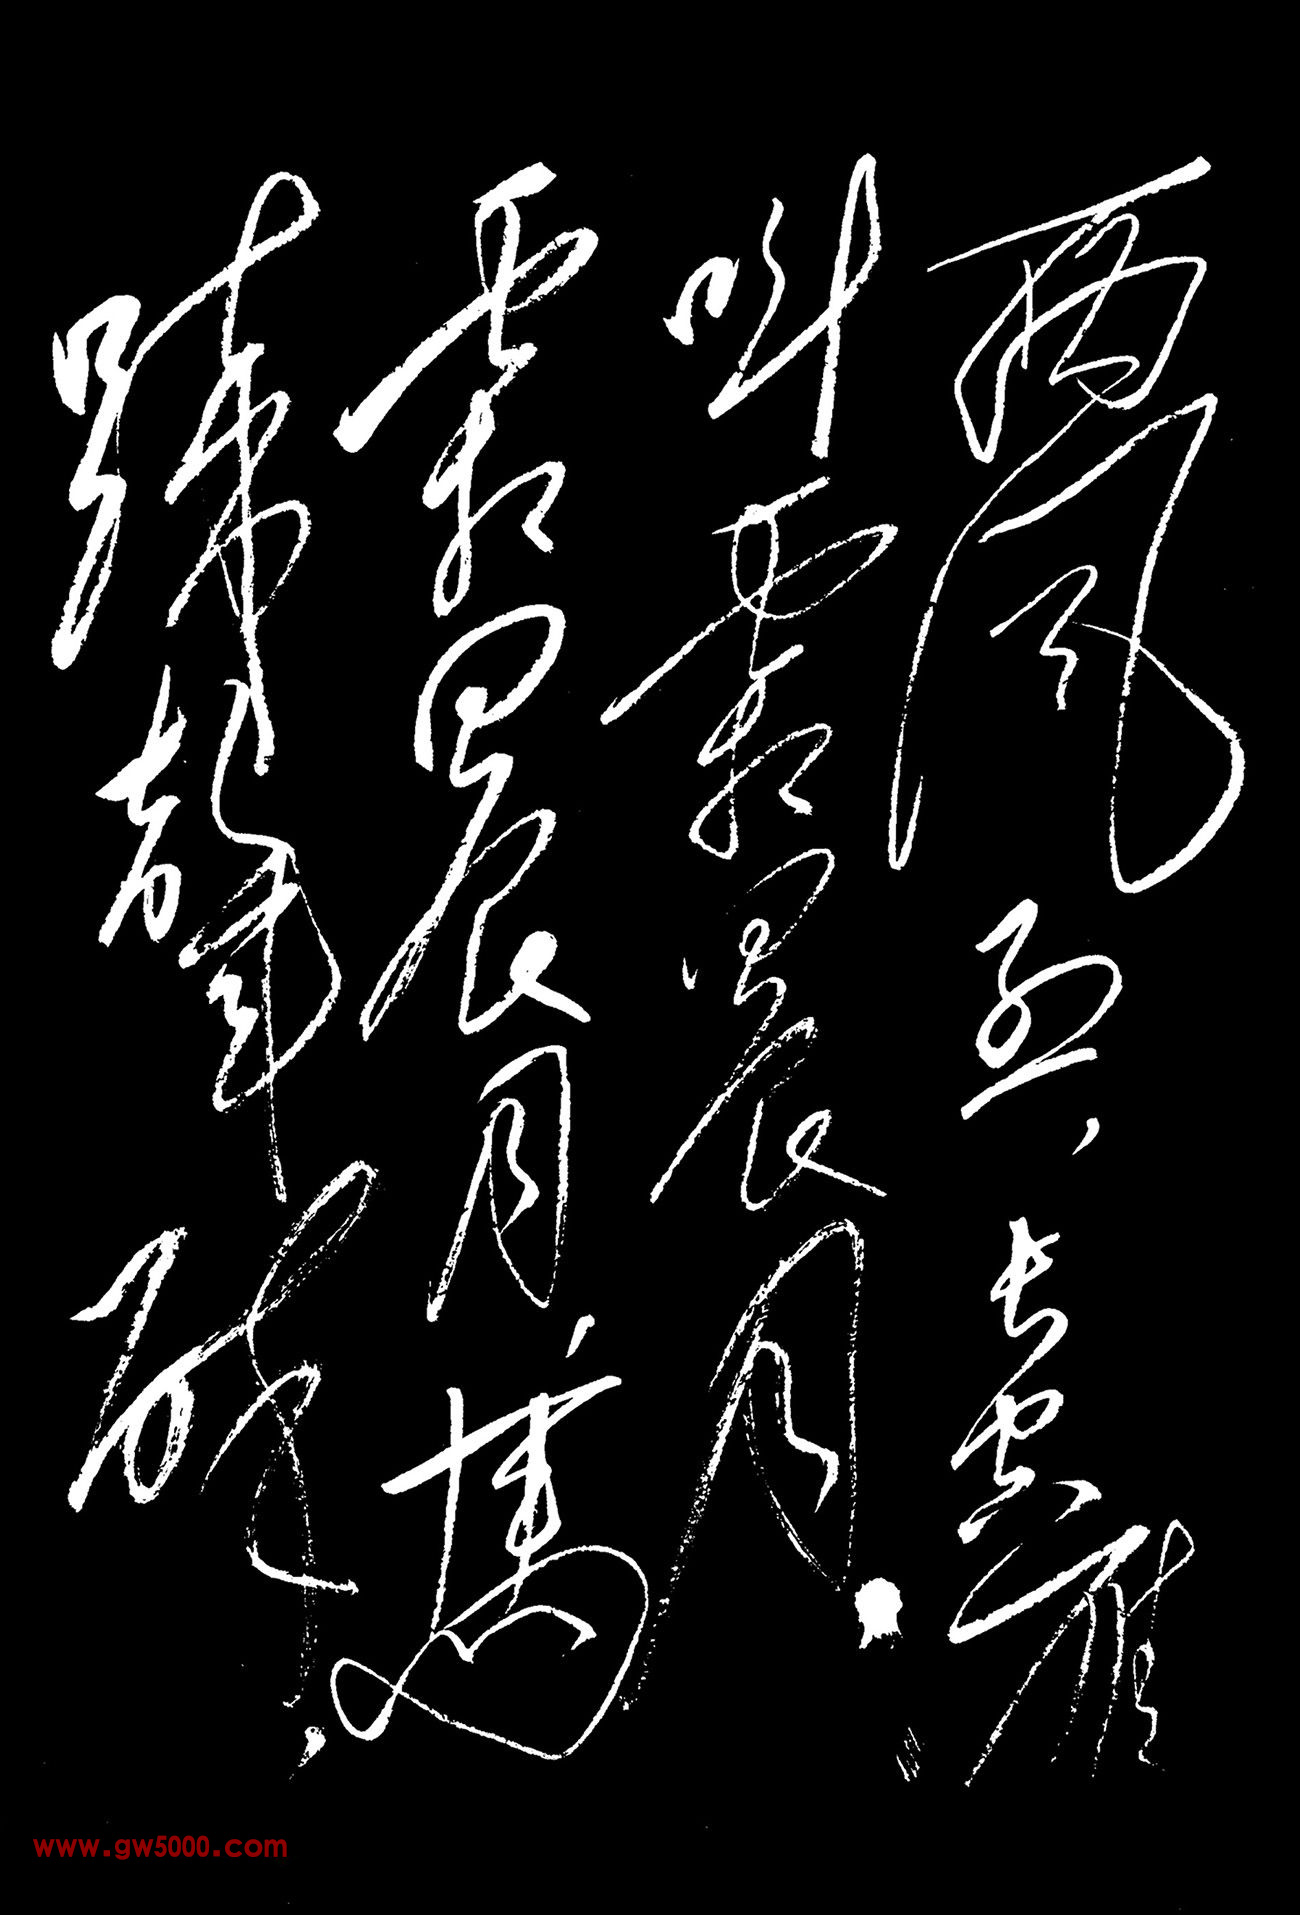 西风烈，长空雁
叫霜晨月。
霜晨月，馬
蹄聲碎，
www.gw5000.com